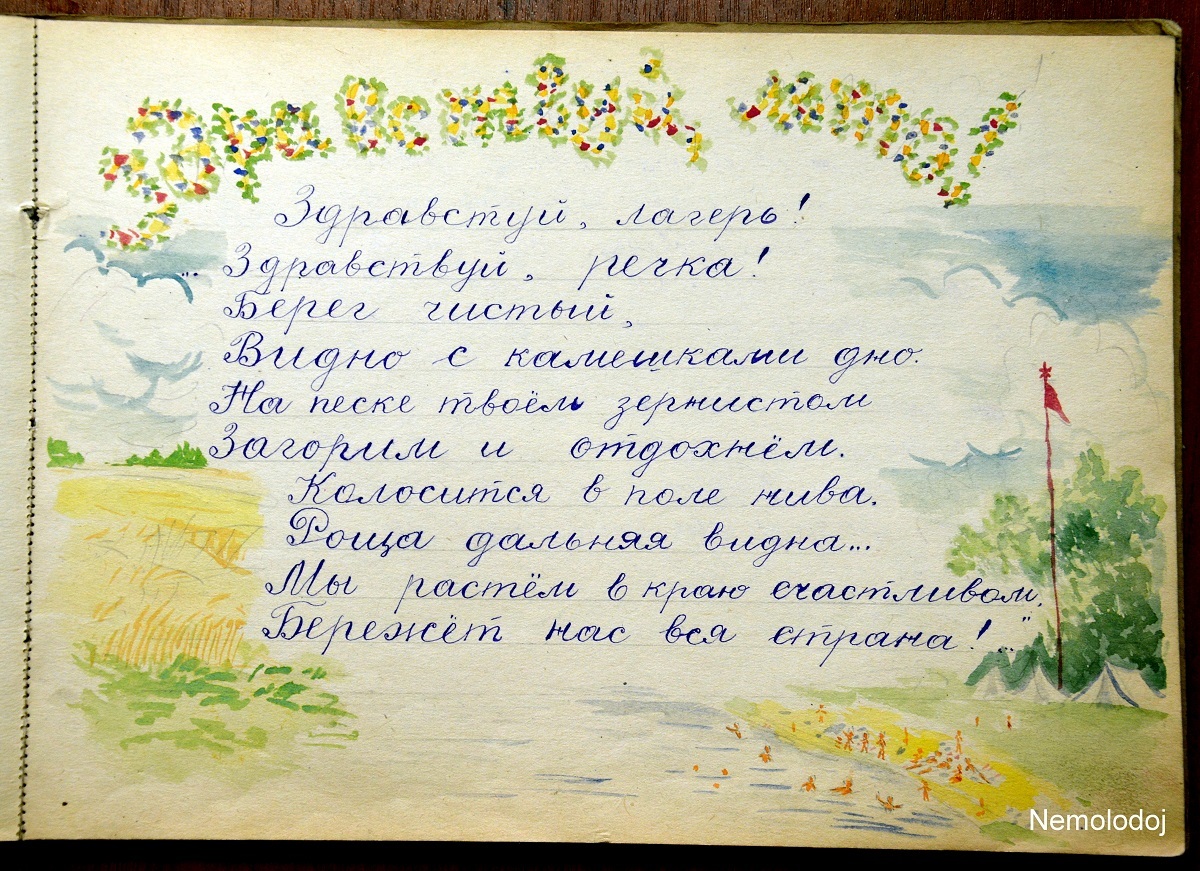 Здравствуй, лето!
Здравстуй, лагерь!
„Здравствуй, речка!
Берег чистый,
Видно с камешками дно.
На песке твоём зернистом
Загорим и отдохнём.
Колосится в поле нива.
Роща дальняя видна...
Мы растём в краю счастливом,
Бережёт нас вся страна!..."
Nemolodoj